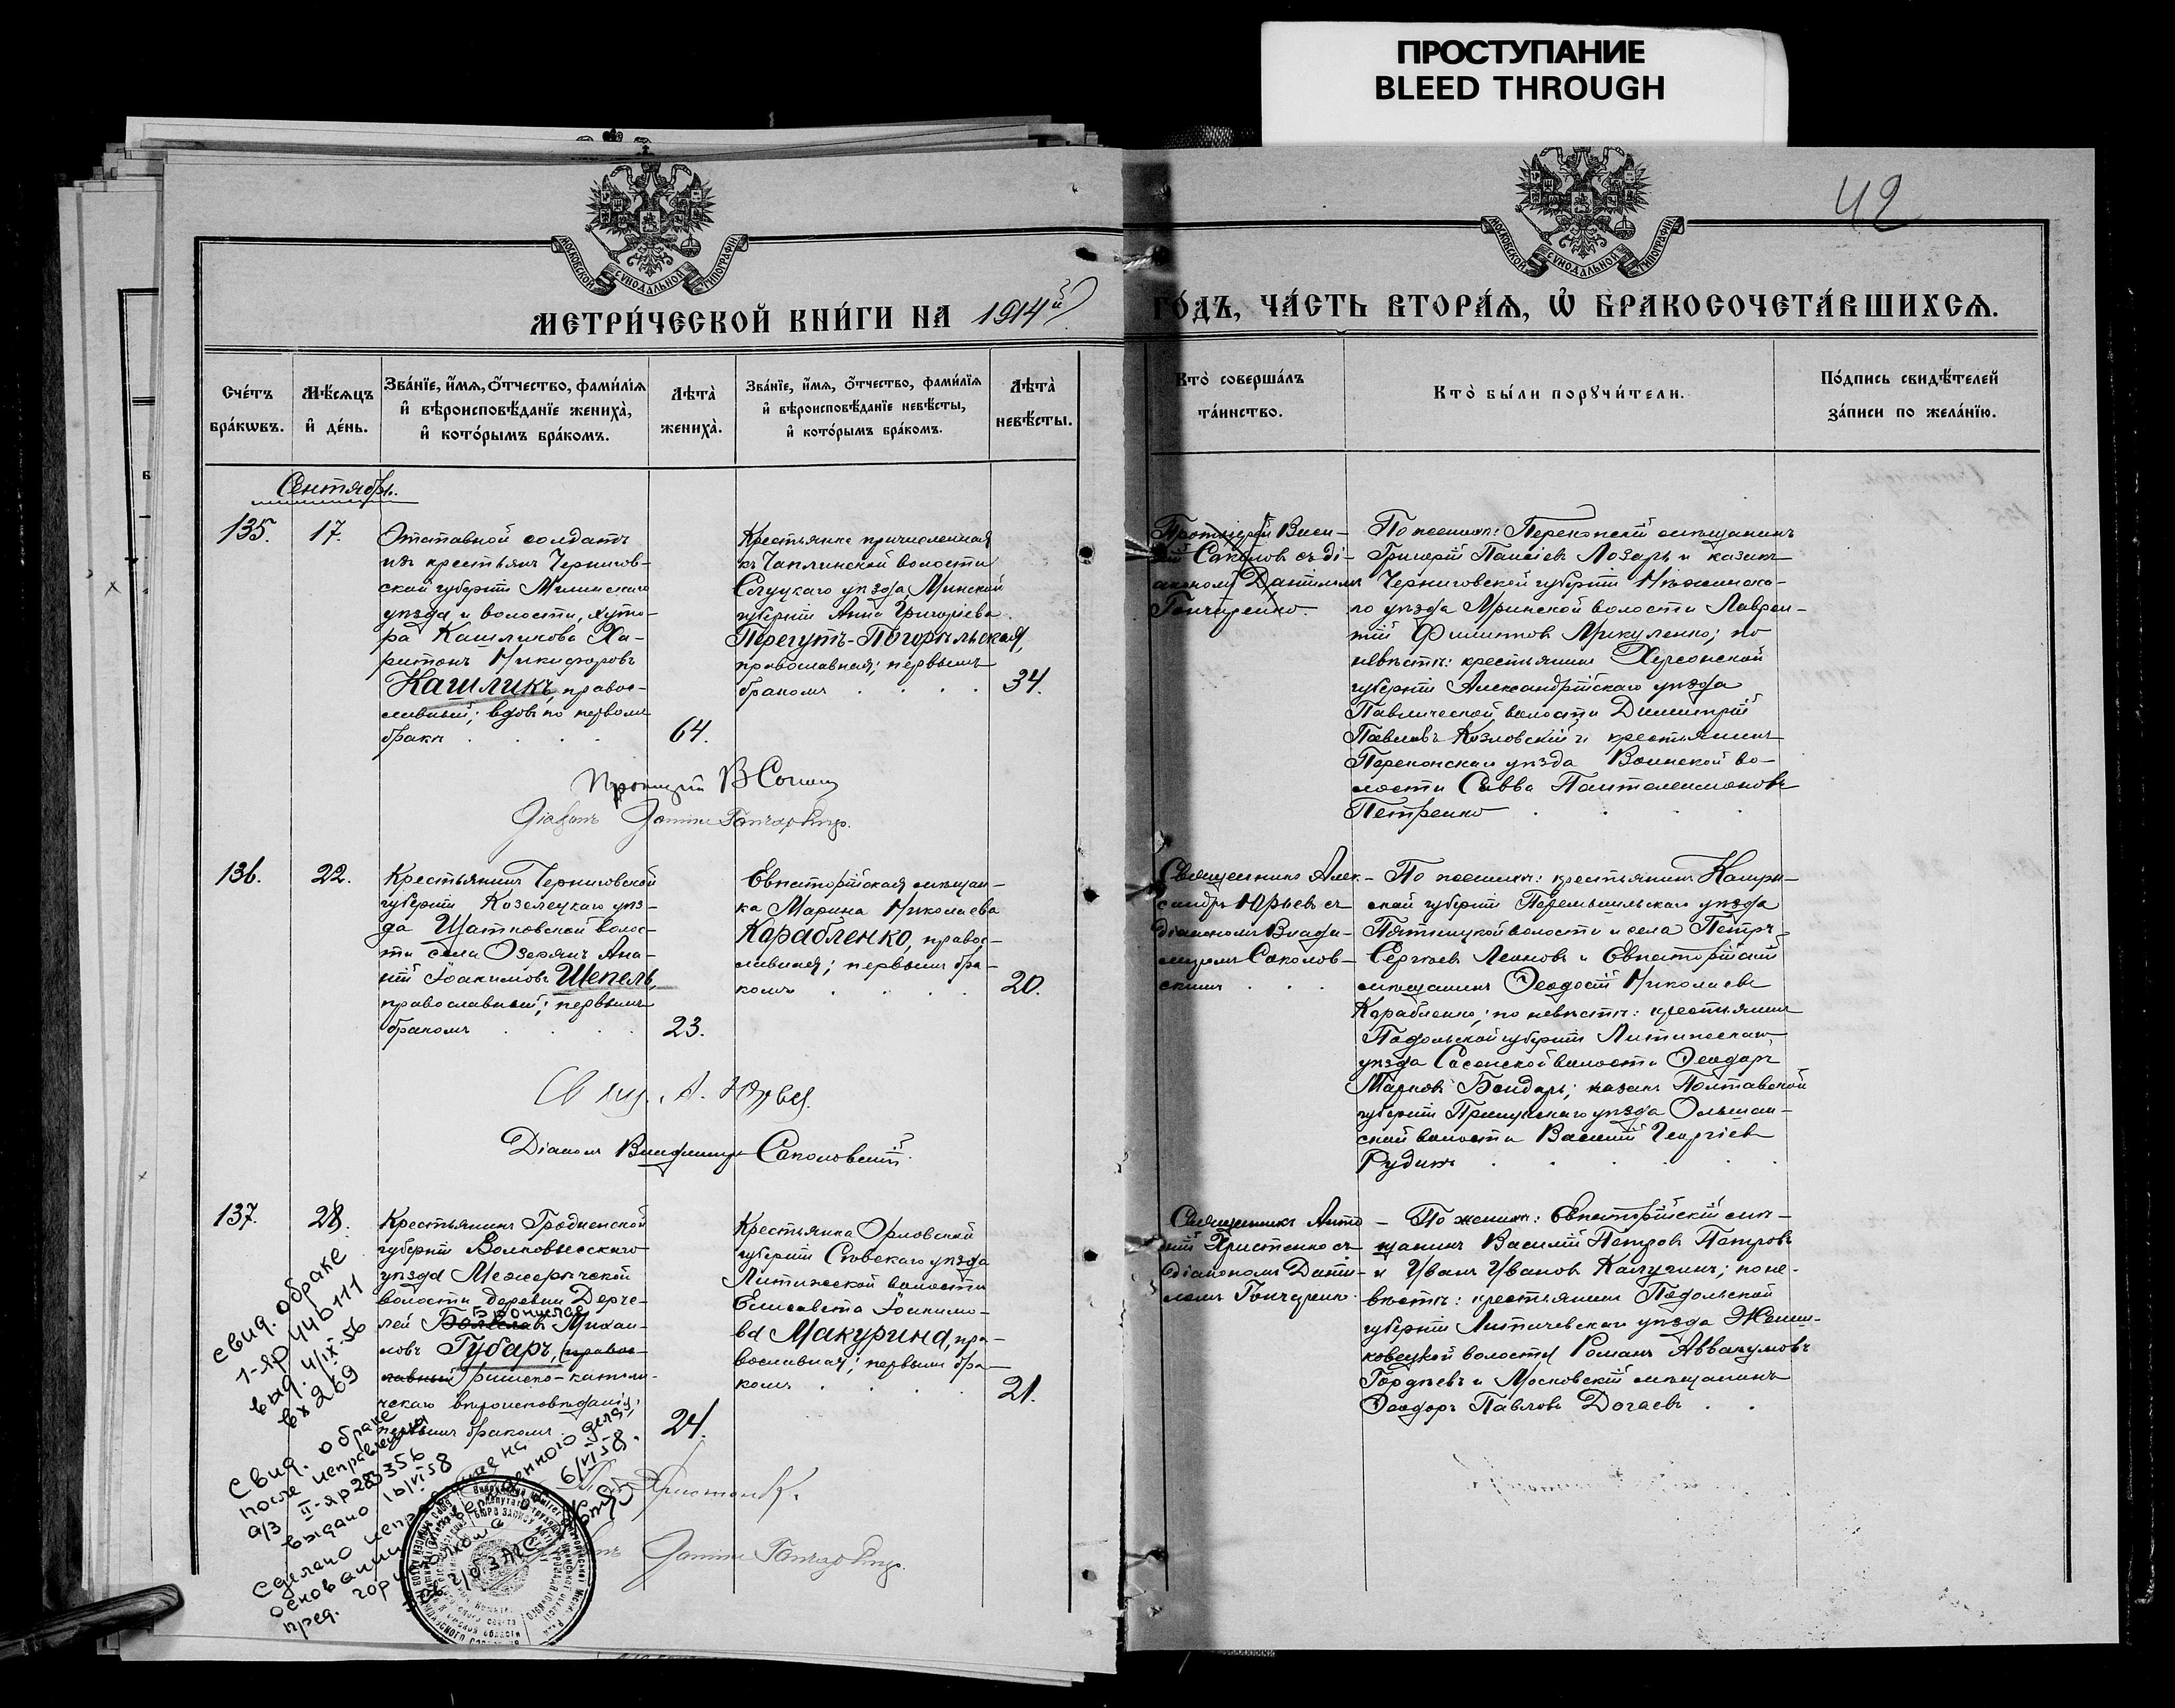 ПРОСТУПАНИЕ
BLEED THROUGH
42
МОСКОВСКОЙ СѴНОДАЛЬНОЙ ТИПОГРАФІИ
МОСКОВСКОЙ СѴНОДАЛЬНОЙ ТИПОГРАФІИ
МЕТРИ́ЧЕСКОЙ КНИ́ГИ НА 1914й
ГО́ДЪ, ЧА́СТЬ ВТОРА́Ѧ, Ѡ҆ БРАКОСОЧЕТА́ВШИХСѦ.
Сче́тъ
бра́кѡвъ.
Мѣ́сѧцъ
и҆ де́нь.
Зва́нїе, и҆́мѧ, ѻ҆́тчество, фами́лїѧ
и҆ вѣроисповѣ́данїе жениха̀,
и҆ кото́рымъ бра́комъ.
Лѣта̀
жениха̀.
Зва́нїе, и҆́мѧ, ѻ҆́тчество, фами́лїѧ
и҆ вѣроисповѣ́данїе невѣ́сты,
и҆ кото́рымъ бра́комъ.
Лѣта̀
невѣ́сты.
Кто̀ соверша́лъ
та́инство.
Кто̀ бы́ли порꙋчи́тели.
По́дпись свидѣ́телей
за́писи по жела́нїю.
Сентябрь.
135.
17.
Отставной солдатъ
изъ крестьянъ Чернигов-
ской губерніи Мглинскаго
уѣзда и волости, хуто-
ра Кашликова Ха-
ритонъ Никифоровъ
Кашликъ, правос-
лавный; вдовъ по первомъ
бракѣ
64.
Крестьянка причисленная
къ Чаплинской волости
Слуцкаго уѣзда, Минской
губерніи Анна Григоріева
Перегутъ-Погорѣльская,
православная; первымъ
бракомъ
34.
Протоіерей
Соколовъ съ ді-
акономъ Даніиломъ
Гончаренко.
По женихѣ: Перекопскій мѣщанинъ
Григорій Паисіевъ Лозарь и казакъ
Черниговской губерніи Нѣжинска-
го уѣзда Мринской волости Лаврен-
тій Филипповъ Микуленко; по
невѣстѣ: крестьянинъ Херсонской
губерніи Александрійскаго уѣзда
Павлической волости Димитрій
Павловъ Козловскій и крестьянинъ
Перекопскаго уѣзда Воинской во-
лости Савва Пантелеимоновъ
Петренко
Діаконъ Даніилъ Гончаренко.
136.
22.
Крестьянинъ Черниговской
губерніи Козелецкаго уѣз-
да Щатковской волос-
ти села Озерянъ Ана-
ній Іоакимовъ Шепель,
православный; первымъ
бракомъ
23.
Евпаторійская мѣщан-
ка Марина Николаева
Карабленко, правос-
лавная; первымъ бра-
комъ
20.
Священникъ Алек-
сандръ Юрьевъ съ
діакономъ Влади-
міромъ Соколов-
скимъ
По женихѣ: крестьянинъ Калуж-
ской губерніи Перемышльскаго уѣзда
Пятницкой волости и села Петръ
Сергѣевъ Леоновъ и Евпаторійскій
мѣщанинъ Ѳеодосій Николаевъ
Карабленко; по невѣстѣ: крестьянинъ
Подольской губерніи Литинскаго
уѣзда Сосонской волости Ѳеодоръ
Марковъ Бондарь; казакъ Полтавской
губерніи Прилукскаго уѣзда Ольшан-
ской волости Василій Георгіевъ
Рудикъ
Свящ. А. Юрьевъ.
Діаконъ Владиміръ Соколовскій.
137.
28.
Крестьянинъ Гродненской
губерніи Волковысскаго
уѣзда Межерѣчской
волости деревни Дерче-
лей Болеславъ Бронислав Михаи-
ловъ Губаръ, правос-
лавный Римско-католи-
ческаго вѣроисповѣданія;
первымъ бракомъ.
24.
Крестьянка Орловской
губерніи Сѣвскаго уѣзда
Литижской волости
Елисавета Іоакимо-
ва Макурина, пра-
вославная; первымъ бра-
комъ
21.
Священникъ Анто-
ній Христенко съ
діакономъ Дані-
ломъ Гончаренко.
По женихѣ: Евпаторійскій мѣ-
щанинъ Василій Петровъ Петровъ
и Иванъ Ивановъ Калугинъ; по не-
вѣстѣ: крестьянинъ Подольской
губерніи Литичевскаго уѣзда Жениш-
ковецкой волости Романъ Аввакумовъ
Гордѣевъ и Московскій мѣщанинъ
Ѳеодоръ Павловъ Догаевъ
Діаконъ Даніилъ Гончаренко.
свид. о браке
1-яр 446111
выд. 4/IX-56
вх 269
Свид. о браке
после исправления
а/з II-яр 283356
выдано 16/VI 58
Сделано исправление на
основании утвержденного дела
пред. горисполкома 6/VI 58.